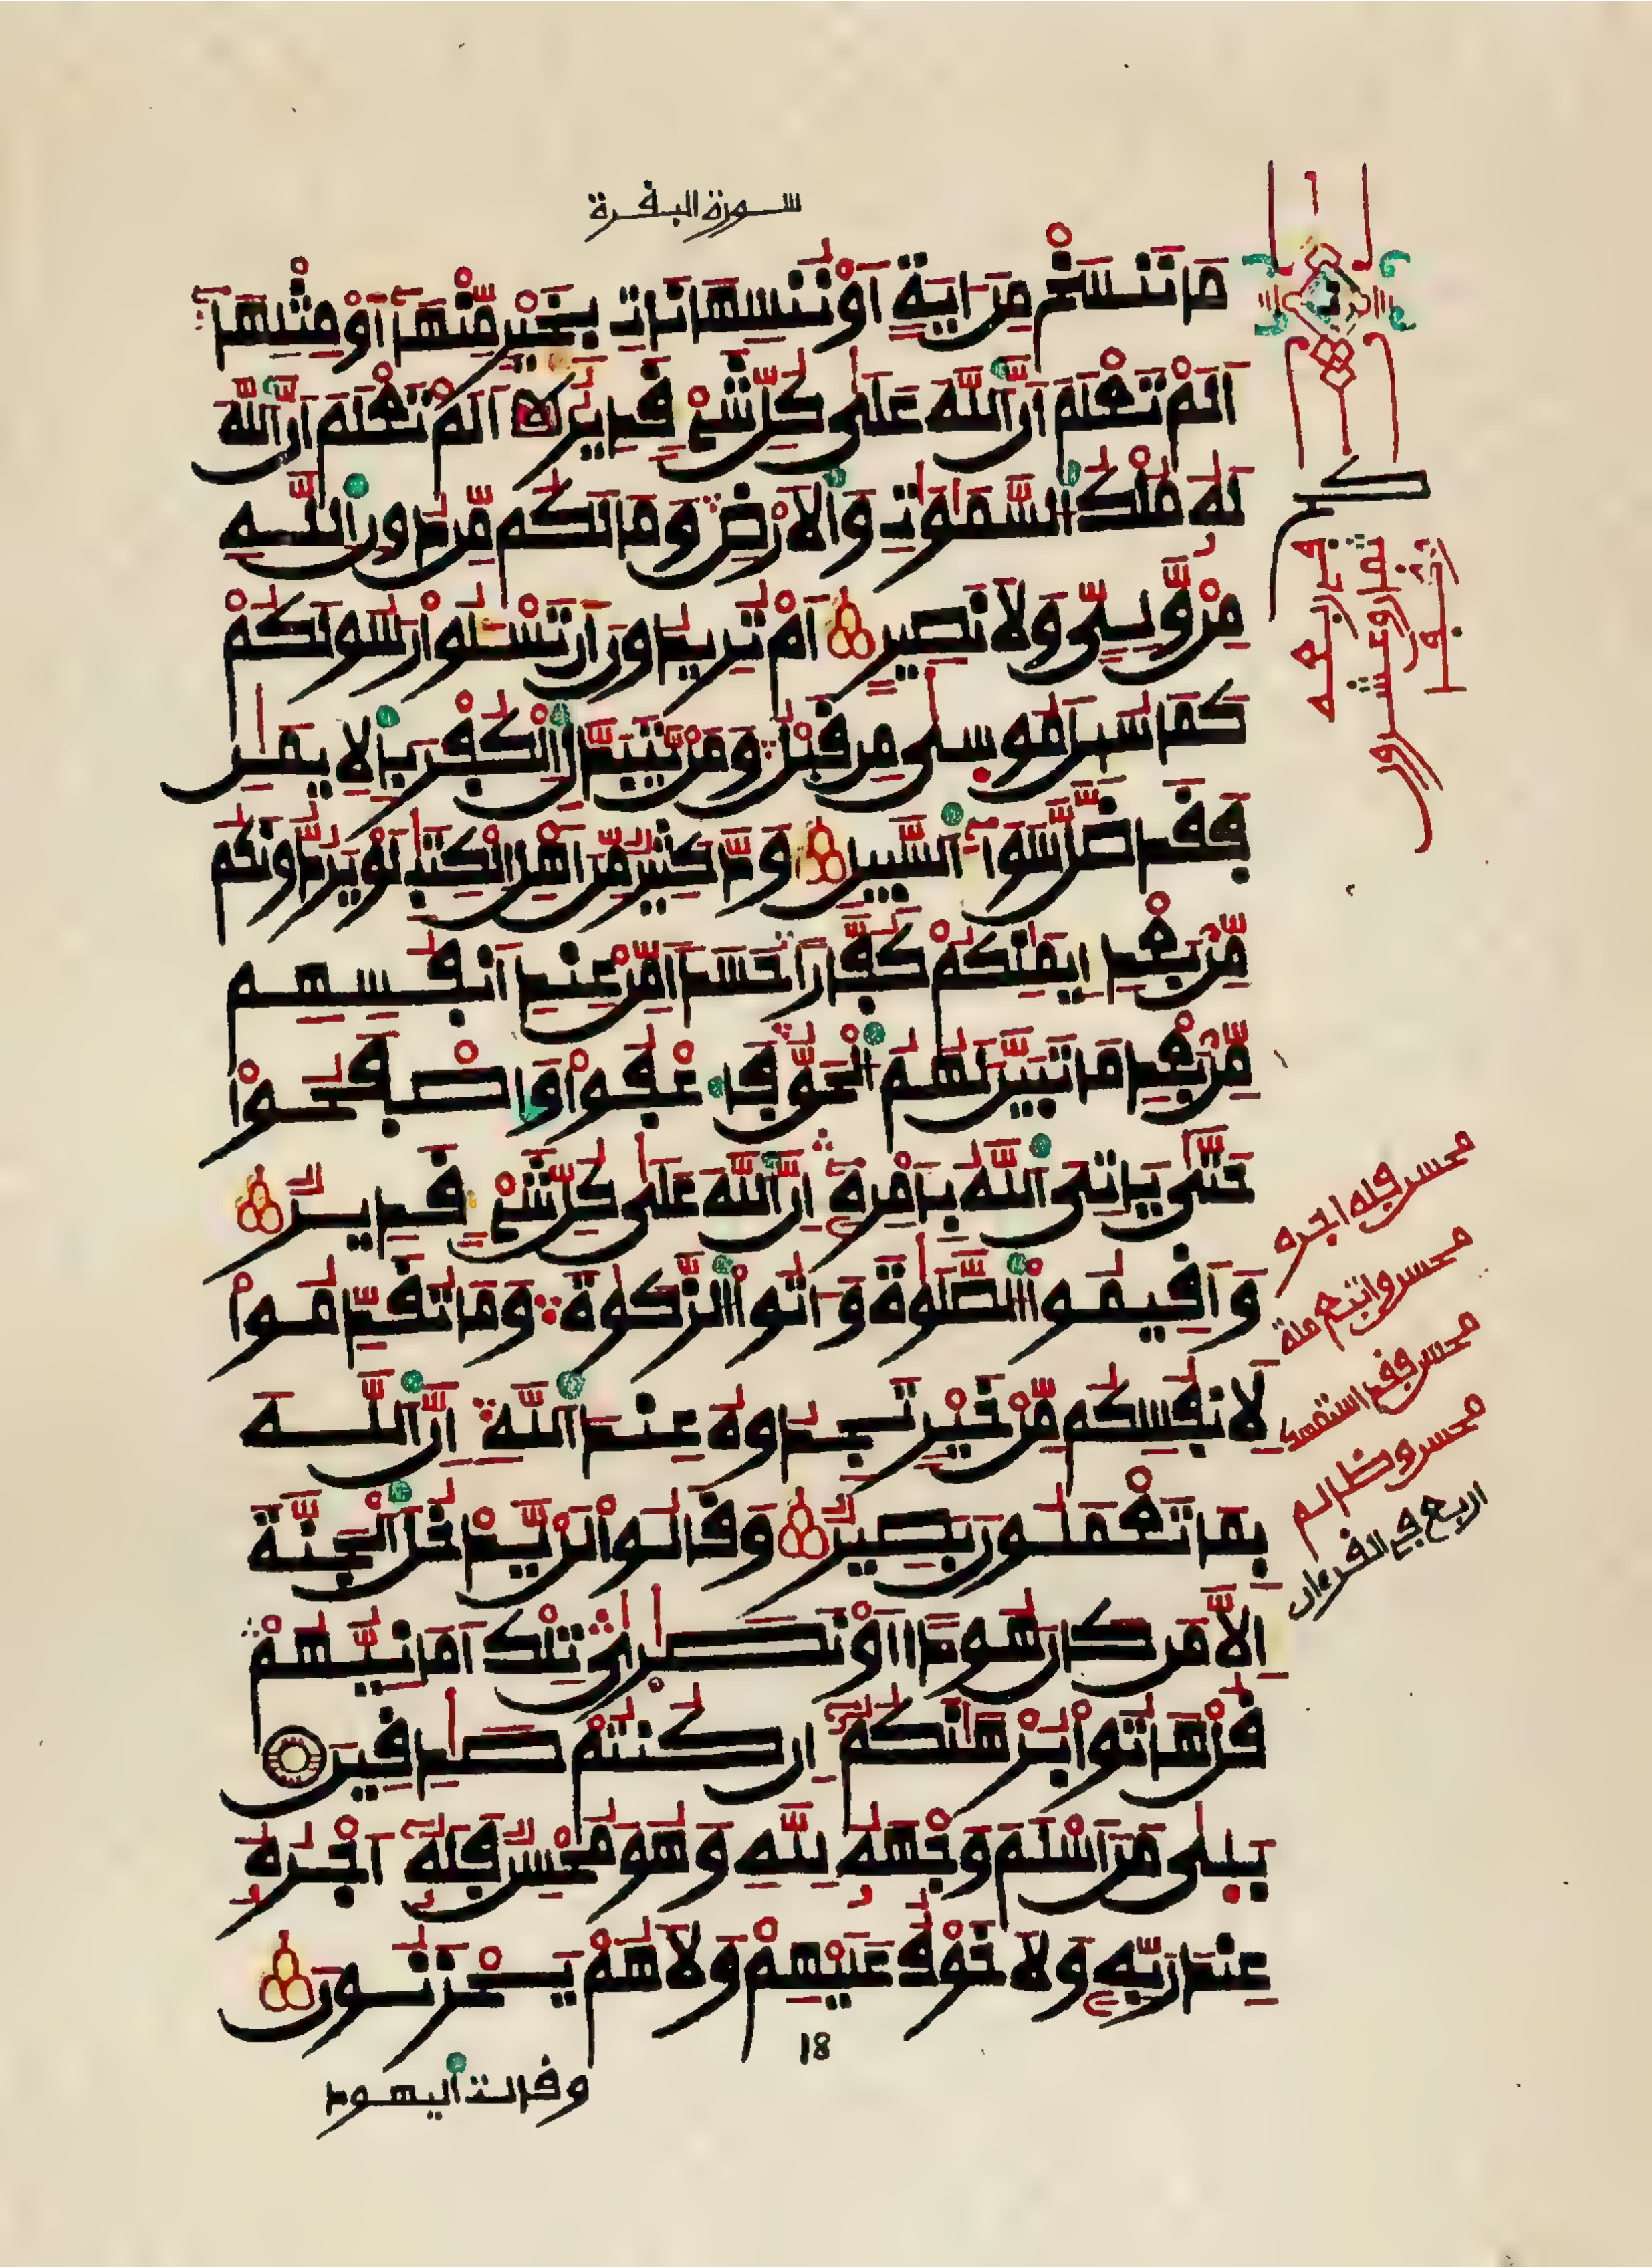 سورة البقرة
مَا نَنسَخْ مِنَ ايَةٍ اَوْ نُنسِهَا نَاتِ بِخَيْرٍ مِّنْهَآ أَوْ مِثْلِهَآ
أَلَمْ تَعْلَمَ اَنَّ ٱللَّهَ عَلَىٰ كُلِّ شَيْءٍ قَدِيرٌ أَلَمْ تَعْلَمَ اَنَّ ٱللَّهَ
لَهُۥ مُلْكُ ٱلسَّمَٰوَٰتِ وَٱلَارْضِ وَمَا لَكُم مِّن دُونِ ٱللَّهِ
مِنْ وَّلِيٍّ وَلَا نَصِيرٍ أَمْ تُرِيدُونَ أَن تَسْـَٔلُواْ رَسُولَكُمْ
كَمَا سُئِلَ مُوسَىٰ مِن قَبْلُ وَمَنْ يَّتَبَدَّلِ ٱلْكُفْرَ بِٱلِايمَٰنِ
فَقَد ضَّلَّ سَوَآءَ ٱلسَّبِيلِ وَدَّ كَثِيرٌ مِّنَ اَهْلِ ٱلْكِتَٰبِ لَوْ يَرُدُّونَكُم
مِّنۢ بَعْدِ إِيمَٰنِكُمْ كُفَّارًا حَسَدًا مِّنْ عِندِ أَنفُسِهِم
مِّنۢ بَعْدِ مَا تَبَيَّنَ لَهُمُ ٱلْحَقُّ فَٱعْفُواْ وَٱصْفَحُواْ
حَتَّىٰ يَاتِيَ ٱللَّهُ بِأَمْرِهِۦٓ إِنَّ ٱللَّهَ عَلَىٰ كُلِّ شَيْءٍ قَدِيرٌ
وَأَقِيمُواْ ٱلصَّلَوٰةَ وَءَاتُواْ ٱلزَّكَوٰةَ وَمَا تُقَدِّمُواْ
لِأَنفُسِكُم مِّنْ خَيْرٍ تَجِدُوهُ عِندَ ٱللَّهِ إِنَّ ٱللَّهَ
بِمَا تَعْمَلُونَ بَصِيرٌ وَقَالُواْ لَنْ يَّدْخُلَ ٱلْجَنَّةَ
إِلَّا مَن كَانَ هُودًا اَوْ نَصَٰرَىٰ تِلْكَ أَمَانِيُّهُمْ
قُلْ هَاتُواْ بُرْهَٰنَكُمُۥٓ إِن كُنتُمْ صَٰدِقِينَ
بَلَىٰ مَنَ اَسْلَمَ وَجْهَهُۥ لِلهِ وَهُوَ مُحْسِنٌ فَلَهُۥٓ أَجْرُهُۥ
عِندَ رَبِّهِۦ وَلَا خَوْفٌ عَلَيْهِمْ وَلَا هُمْ يَحْزَنُونَ
18
وقالت ٱليهود
محسن فله اجره
محسن واتبع ملة
محسن فقد استمسك
محسن وظالم
اربع في القرءان